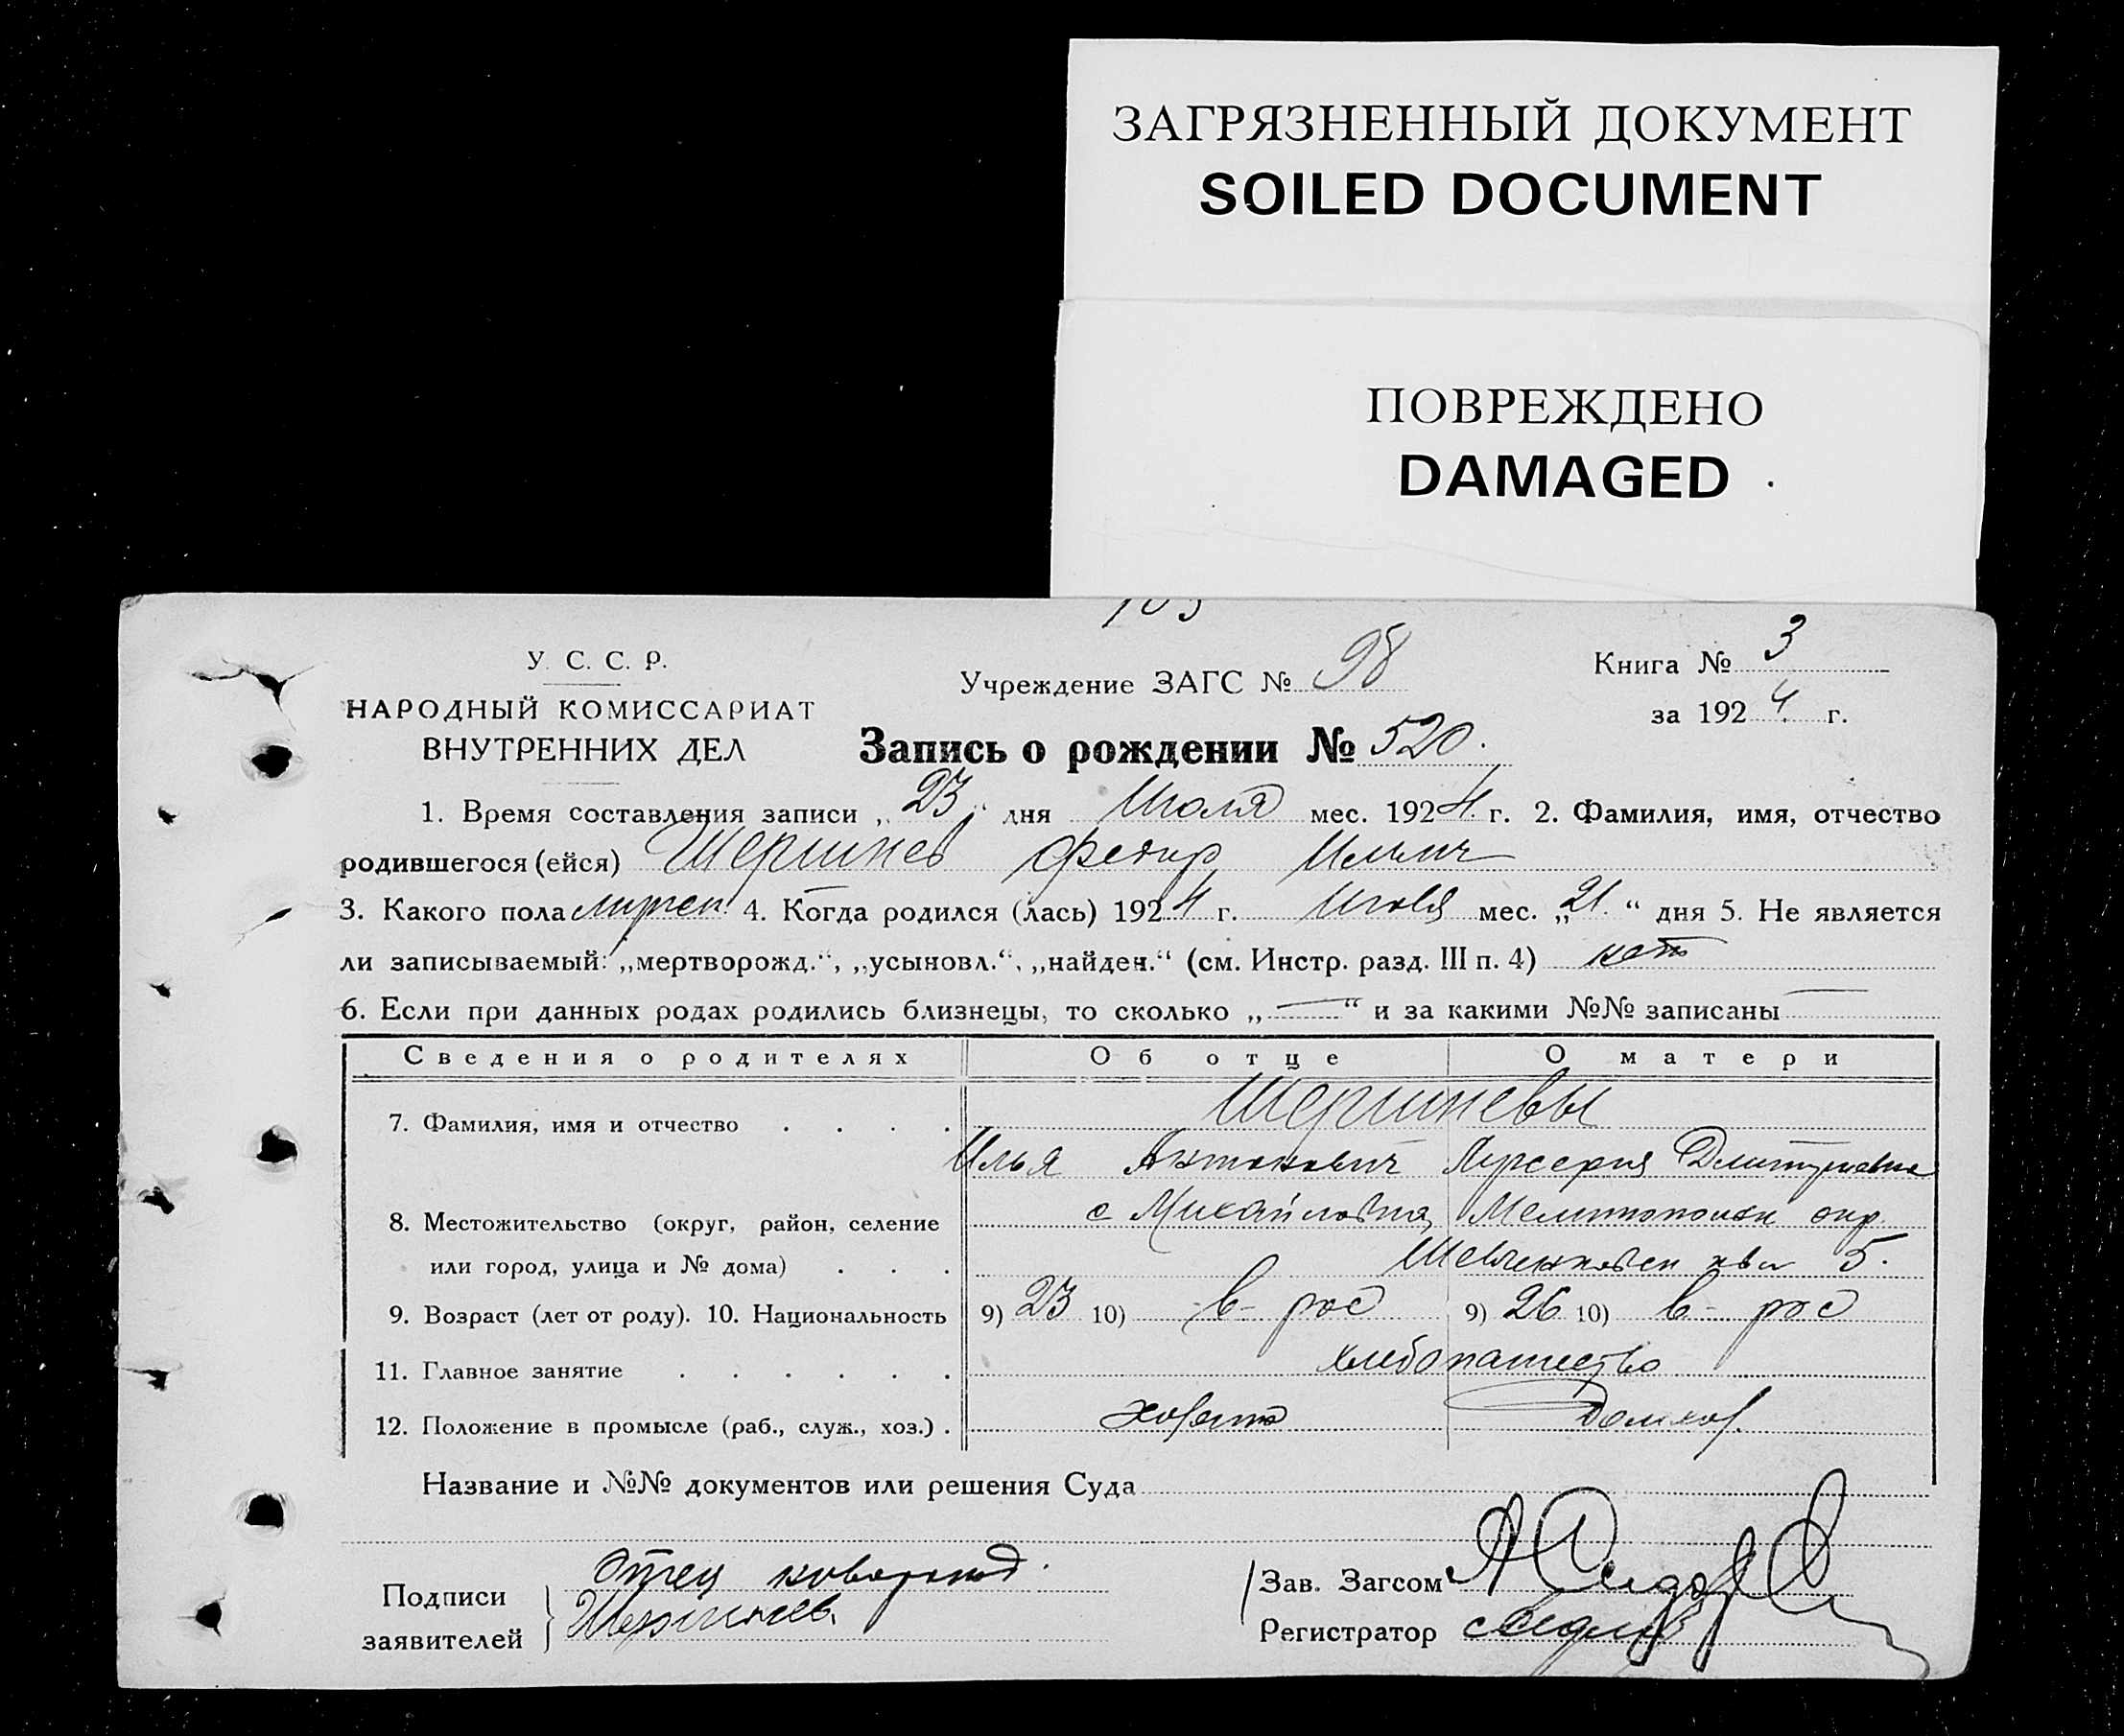 ЗАГРЯЗНЕННЫЙ ДОКУМЕНТ
SOILED DOCUMENT
ПОВРЕЖДЕНО
DAMAGED
У. С. С. Р.
НАРОДНЫЙ КОМИССАРИАТ
ВНУТРЕННИХ ДЕЛ
Учреждение ЗАГС № 98
Книга № 3
за 1924 г.
Запись о рождении № 520.
1. Время составления записи „23" дня Июля мес. 1924 г. 2. Фамилия, имя, отчество
родившегося (ейся) Шершнев Ильич
3. Какого пола 4. Когда родился (лась) 1924 г. мес. „21." дня 5. Не является
ли записываемый: „мертворожд.", „усыновл.", „найден." (см. Инстр. разд. III п. 4) нет
6. Если при данных родах родились близнецы, то сколько „—" и за какими №№ записаны —
Сведения о родителях Об отце О матери
7. Фамилия, имя и отчество Шершневы
Илья Антонович Лукерия Дмитриевна
8. Местожительство (округ, район, селение с Михайловка, окр.
или город, улица и № дома) 5.
9. Возраст (лет от роду). 10. Национальность 9) 23 10) в- рос 9) 26 10) в- рос
11. Главное занятие хлебопашество
12. Положение в промысле (раб., служ., хоз.) Домхоз.
Название и №№ документов или решения Суда
Подписи заявителей Отец
Шершнев
Зав. Загсом
Регистратор